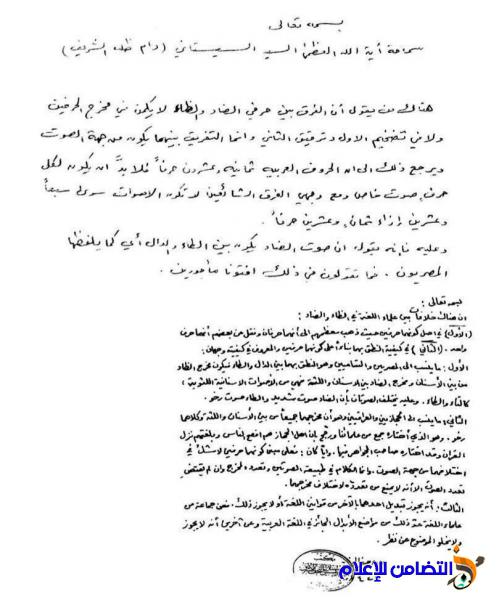 بسمه تعالى
سماحة آية الله العظمى السيد السيستاني (دام ظله الشريف)
هناك من يقول أن الفرق بين حرفي الضاد والظاء لا يكون في مخرج الحرفين
ولا في تفخيم الاول وترقيق الثاني وانما التفريق بينهما يكون من جهة الصوت
ويرجع ذلك الى ان الحروف العربية ثمانية وعشرون حرفاً فلا بدَّ ان يكون لكل
حرف صوت خاص ومع وجهي الفرق الشائعين لا تكون الاصوات سوى سبعاً
وعشرين ازاء ثمان وعشرين حرفاً.
وعليه فإنه يقول ان صوت الضاد يكون بين الطاء والدال أي كما يلفظها
المصريون. فما تقولون في ذلك افتونا مأجورين.
بسمه تعالى:
ان هناك خلافات بين علماء اللغة في الظاء والضاد:
(الأول) في اصل كونهما حرفين حيث ذهب معظمهم الى أنهما حرفان ونقل عن بعضهم أنهما حرف
واحد. (الثاني) في كيفية النطق بهما بناءً على كونهما حرفين والمعروف في كيفيته وجهان:
الأول: ما ينسب الى المصريين والشاميين وهو النطق بهما بين الدال والظاء فيكون مخرج الظاء
من بين الأسنان ومخرج الضاد بين الاسنان واللثة فهي من الأصوات الاسنانية اللثوية
كالتاء والطاء. وعليه تختلف الصوتان بأن الضاد صوت شديد والظاء صوت رخو.
الثاني: ما ينسب الى الحجازيين والعراقيين وهو أن مخرجهما جميعاً من بين الأسنان واللثة وكلاهما
رخو. وهو الذي أختاره جمع من علمائنا ورجح بان اهل الحجاز هم افصح الناس وبلغتهم نزل
القرآن وقد اختاره صاحب الجواهر فيها. وايّاً كان: فعلى مبنى كونهما حرفين لا شك في
اختلافهما من جهة الصوت. وانما الكلام في طبيعة الصوتين وتعدد المخرج وان لم يقتضِ
تعدد الصوت الا أنه لا يمنع من تعدده لاختلاف مخرجهما.
الثالث: أنه يجوز تبديل احدهما بالآخر من قوانين اللغة أو لا يجوز ذلك. فعن جماعة من
علماء اللغة عدّ ذلك من مواضع الأبدال الجائز في اللغة العربية وعن آخرين أنه لا يجوز
ولا يخلو الموضوع عن نظر.
التضامن للإعلام